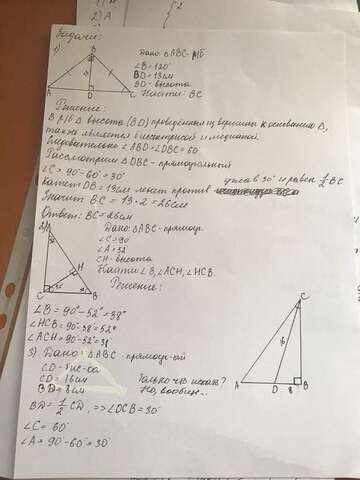 Задачи:
1)
B
A
D
C
Дано: ΔABC - р/б
∠B = 120°
BD = 13см
BD - высота
Найти: BC
Решение:
В р/б Δ высота (BD) проведённая из вершины к основанию Δ,
также является биссектрисой и медианой.
Следовательно ∠ABD = ∠DBC = 60°
Рассмотрим ΔDBC - прямоугольный
∠C = 90° - 60° = 30°
Катет DB = 13см лежит против угла в 30° и равен 1/2 BC
Значит BC = 13 · 2 = 26см
Ответ: BC = 26см
2)
H
C
B
Дано: ΔABC - прямоуг.
∠C = 90°
∠A = 52°
CH - высота
Найти ∠B, ∠ACH, ∠HCB.
Решение:
∠B = 90° - 52° = 38°
∠HCB = 90° - 38° = 52°
∠ACH = 90° - 52° = 38°
3) Дано: ΔABC - прямоуг-ый
CD - бис-са
CD = 16см
BD = 8см
Только что искать?
Но, вообщем...
BD = 1/2 CD, => ∠DCB = 30°
∠C = 60°
∠A = 90° - 60° = 30°
C
16
A
D
8
B